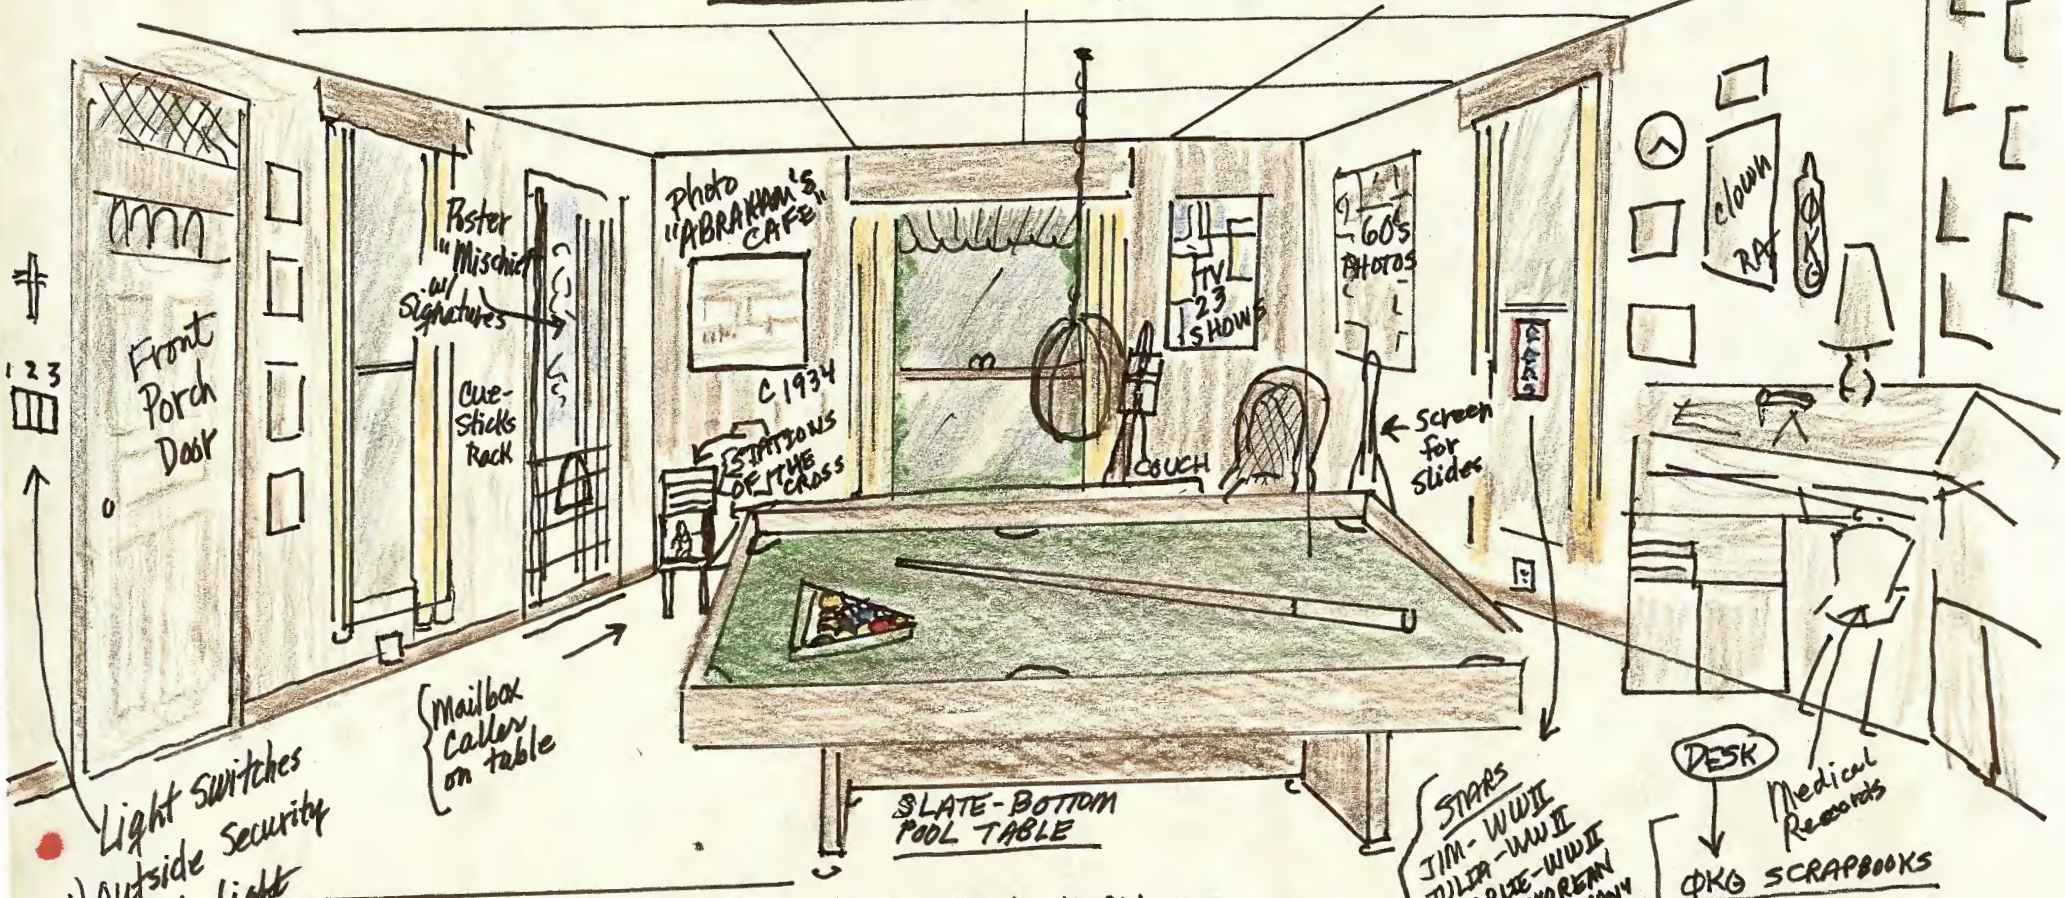 1 2 3
Front
Porch
Door
Poster
"Mischief"
w/
Signatures
Cue-
Sticks
Rack
Photo
"ABRAHAM'S
CAFE"
C 1934
STATIONS
OF THE
CROSS
TV
23
SHOWS
60'S
PHOTOS
COUCH
Screen
for
Slides
Clown
RAF
ΦKΘ
Light Switches
Outside Security
Light
Mailbox
Caller
on table
SLATE-BOTTOM
POOL TABLE
STARS
JIM-WWII
JULIA-WWII
-WWII
KOREAN
DESK
Medical
Records
ΦKΘ SCRAPBOOKS